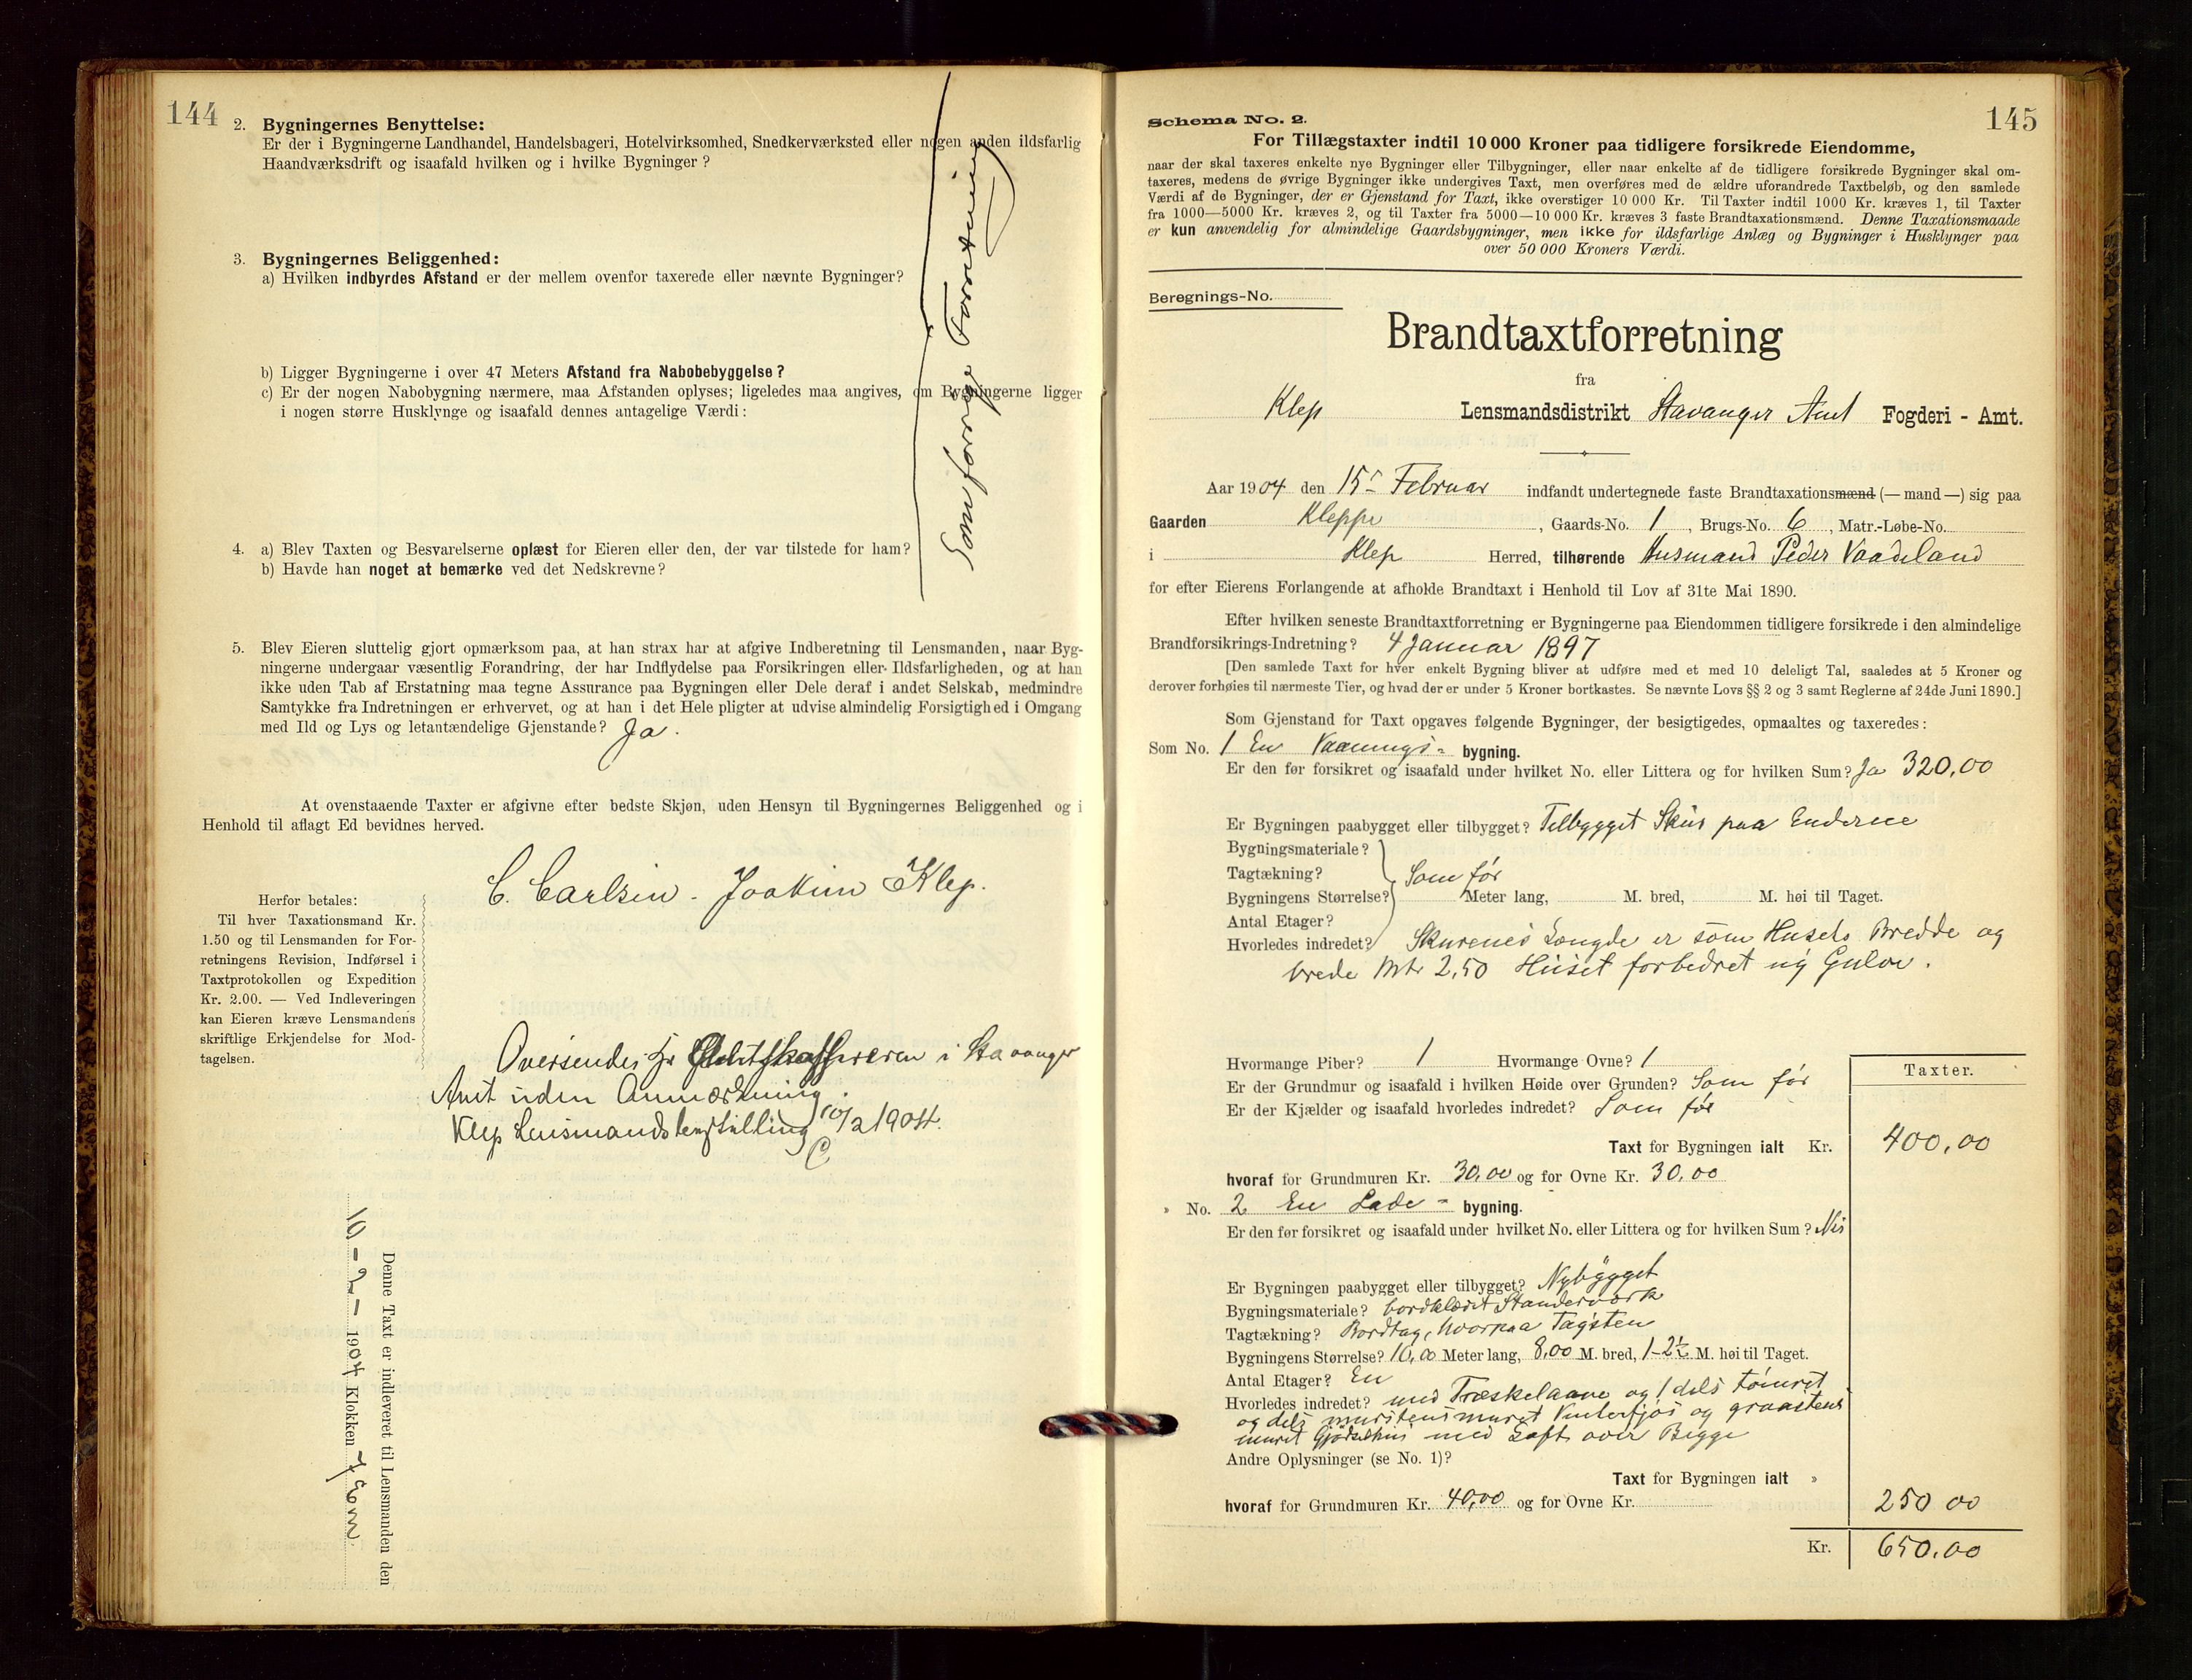 144
2. Bygningernes Benyttelse:
Er der i Bygningerne Landhandel, Handelsbageri, Hotelvirksomhed, Snedkerværksted eller nogen anden ildsfarlig
Haandværksdrift og isaafald hvilken og i hvilke Bygninger?
3. Bygningernes Beliggenhed:
a) Hvilken indbyrdes Afstand er der mellem ovenfor taxerede eller nævnte Bygninger?
b) Ligger Bygningerne i over 47 Meters Afstand fra Nabobebyggelse?
c) Er der nogen Nabobygning nærmere, maa Afstanden oplyses; ligeledes maa angives, om Bygningerne ligger
i nogen større Husklynge og isaafald dennes antagelige Værdi:
Som forrige Forretning
4. a) Blev Taxten og Besvarelserne oplæst for Eieren eller den, der var tilstede for ham?
b) Havde han noget at bemærke ved det Nedskrevne?
5. Blev Eieren sluttelig gjort opmærksom paa, at han strax har at afgive Indberetning til Lensmanden, naar Byg-
ningerne undergaar væsentlig Forandring, der har Indflydelse paa Forsikringen eller Ildsfarligheden, og at han
ikke uden Tab af Erstatning maa tegne Assurance paa Bygningen eller Dele deraf i andet Selskab, medmindre
Samtykke fra Indretningen er erhvervet, og at han i det Hele pligter at udvise almindelig Forsigtighed i Omgang
med Ild og Lys og letantændelige Gjenstande? Ja.
At ovenstaaende Taxter er afgivne efter bedste Skjøn, uden Hensyn til Bygningernes Beliggenhed og i
Henhold til aflagt Ed bevidnes herved.
C. Carlsen. Joakim Klep.
Herfor betales:
Til hver Taxationsmand Kr.
1.50 og til Lensmanden for For-
retningens Revision, Indførsel i
Taxtprotokollen og Expedition
Kr. 2.00. — Ved Indleveringen
kan Eieren kræve Lensmandens
skriftlige Erkjendelse for Mod-
tagelsen.
Oversendes Hr i Stavanger
Amt uden Anmærkning.
Klep Lensmandsbestilling 10/2 1904.
C
Denne Taxt er indleveret til Lensmanden den
10-2- 1904 Klokken 7 Em
145
Schema No. 2.
For Tillægstaxter indtil 10 000 Kroner paa tidligere forsikrede Eiendomme,
naar der skal taxeres enkelte nye Bygninger eller Tilbygninger, eller naar enkelte af de tidligere forsikrede Bygninger skal om-
taxeres, medens de øvrige Bygninger ikke undergives Taxt, men overføres med de ældre uforandrede Taxtbeløb, og den samlede
Værdi af de Bygninger, der er Gjenstand for Taxt, ikke overstiger 10 000 Kr. Til Taxter indtil 1000 Kr. kræves 1, til Taxter
fra 1000—5000 Kr. kræves 2, og til Taxter fra 5000—10 000 Kr. kræves 3 faste Brandtaxationsmænd. Denne Taxationsmaade
er kun anvendelig for almindelige Gaardsbygninger, men ikke for ildsfarlige Anlæg og Bygninger i Husklynger paa
over 50 000 Kroners Værdi.
Beregnings-No.
Brandtaxtforretning
fra
Klep Lensmandsdistrikt Stavanger Amt Fogderi - Amt.
Aar 1904 den 15 Februar indfandt undertegnede faste Brandtaxationsmænd (— mand —) sig paa
Gaarden Kleppe, Gaards-No. 1, Brugs-No. 6, Matr.-Løbe-No.
i Klep Herred, tilhørende Husmand Peder Vaadeland
for efter Eierens Forlangende at afholde Brandtaxt i Henhold til Lov af 31te Mai 1890.
Efter hvilken seneste Brandtaxtforretning er Bygningerne paa Eiendommen tidligere forsikrede i den almindelige
Brandforsikrings-Indretning? 4 Januar 1897
[Den samlede Taxt for hver enkelt Bygning bliver at udføre med et med 10 deleligt Tal, saaledes at 5 Kroner og
derover forhøies til nærmeste Tier, og hvad der er under 5 Kroner bortkastes. Se nævnte Lovs §§ 2 og 3 samt Reglerne af 24de Juni 1890.]
Som Gjenstand for Taxt opgaves følgende Bygninger, der besigtigedes, opmaaltes og taxeredes:
Som No. 1 En Vaanings- bygning.
Er den før forsikret og isaafald under hvilket No. eller Littera og for hvilken Sum? Ja 320,00
Er Bygningen paabygget eller tilbygget? Tilbygget Skur paa Enderne
Bygningsmateriale?
Tagtækning? Som før
Bygningens Størrelse? Meter lang, M. bred, M. høi til Taget.
Antal Etager?
Hvorledes indredet? Skurenes Længde er som Husets Bredde og
brede Mtr 2,50 Huset forbedret ny Gulve.
Hvormange Piber? 1 Hvormange Ovne? 1
Er der Grundmur og isaafald i hvilken Høide over Grunden? Som før
Er der Kjælder og isaafald hvorledes indredet? Som før
Taxter.
Taxt for Bygningen ialt Kr. 400,00
hvoraf for Grundmuren Kr. 30,00 og for Ovne Kr. 30,00
» No. 2 En Lade- bygning.
Er den før forsikret og isaafald under hvilket No. eller Littera og for hvilken Sum? Nei
Er Bygningen paabygget eller tilbygget? Nybygget
Bygningsmateriale? bordklædt Standerværk
Tagtækning? Bordtag, hvorpaa Tagsten
Bygningens Størrelse? 10,00 Meter lang, 8,00 M. bred, 1-2½ M. høi til Taget.
Antal Etager? En
Hvorledes indredet? med Træskelaave og 1 dels tømret
og dels murstensmuret Vinterfjøs og graastens
muret Gjødselhus med Loft over Begge
Andre Oplysninger (se No. 1)?
Taxt for Bygningen ialt »
hvoraf for Grundmuren Kr. 40,00 og for Ovne Kr. 250 00
Kr. 650,00